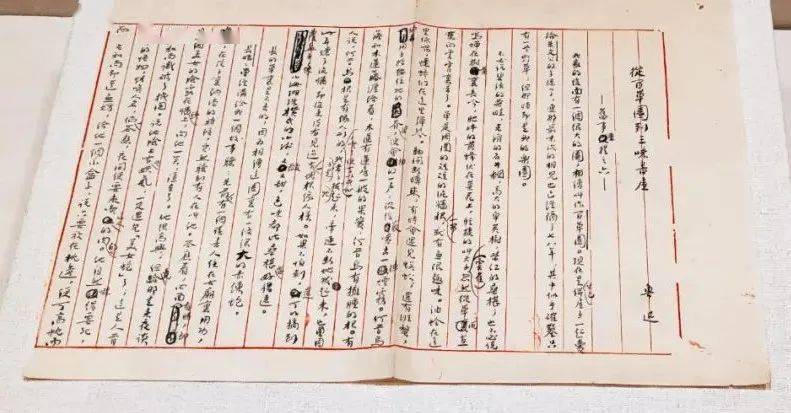 從百草園到三味書屋
——舊事重提之六——
魯迅
我家的後面有一個很大的園，相傳叫作百草園。現在是早已併屋子一起賣
給朱文公的子孫了，連那最末次的相見也已經隔了七八年，其中似乎確鑿只
有一些野草；但那時却是我的樂園。
不必說碧綠的菜畦，光滑的石井欄，高大的皂莢樹，紫紅的桑椹；也不必說
鳴蟬在樹葉裏長吟，肥胖的黃蜂伏在菜花上，輕捷的叫天子（雲雀）忽然從草間直
竄向雲霄裏去了。單是周圍的短短的泥牆根一帶，就有無限趣味。油蛉在這
里低唱，蟋蟀們在這里彈琴。翻開斷磚來，有時會遇見蜈蚣；還有斑蝥，
倘若用手指按住它的脊梁，便會拍的一聲，從後竅噴出一陣煙霧。何首烏
藤和木蓮藤纏絡着，木蓮有蓮房一般的果實，何首烏有擁腫的根。有
人說，何首烏根是有像人形的，吃了便可以成仙，我於是常常拔它起來，牽連不斷地拔起來，也曾因
此弄壞了泥牆，却從來沒有見過有一塊根像人樣。如果不怕刺，還可以摘到
覆盆子，像小珊瑚珠攢成的小球，又酸又甜，色味都比桑椹要好得遠。
長的草裏是不去的，因為相傳這園裏有一條很大的赤練蛇。
長媽媽曾經講給我一個故事聽：先前，有一個讀書人住在古廟裏用功，
晚間，在院子里納涼的時候，突然聽到有人在叫他。答應着，四面看時，却
見一個美女的臉露在牆頭上，向他一笑，隱去了。他很高興；但竟給那走來夜談
的老和尚識破了機關。說他臉上有些妖氣，一定遇見「美女蛇」了；這是人首
蛇身的怪物，能喚人名，倘一答應，夜間便要來吃這人的肉的。他自然嚇得要死，
而那老和尚却道無妨，給他一個小盒子，說只要放在枕邊，便可高枕而